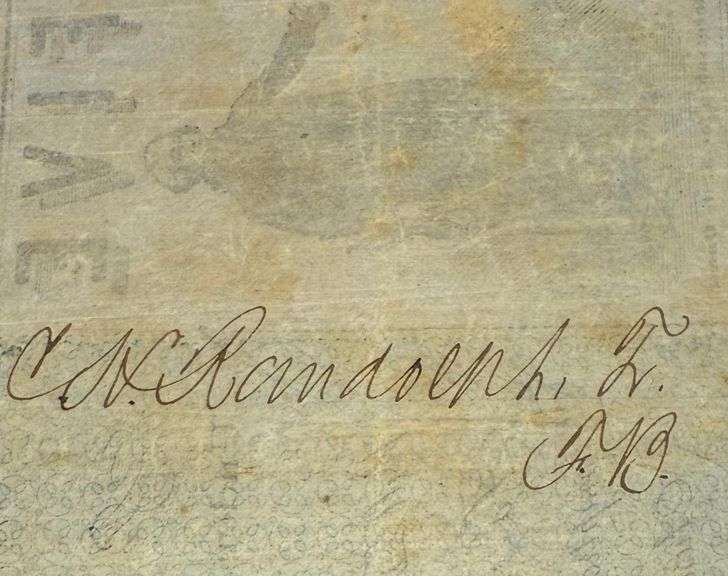 FIVE
C.H. Randolph, T.
F.B.